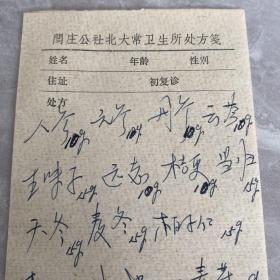 閆庄公社北大常卫生所处方笺
姓名 年龄 性别
住址 初复诊
处方
人参10g 玄参10g 丹参10g 云苓10g
五味子15g 远志10g 桔梗10g 当归15g
天冬15g 麦冬15g 柏子仁15g